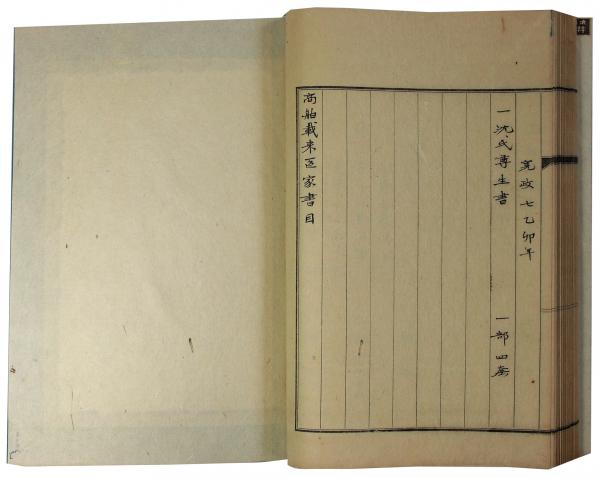 寛政七乙卯年
一沈氏尊生書 一部四套
商舶載来医家書目